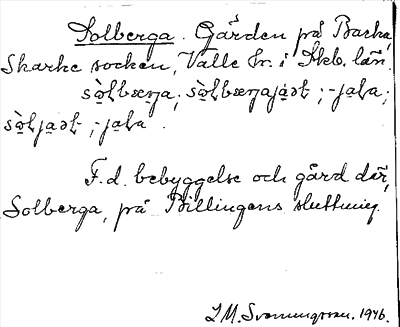 Solberga. Gården på Backa,
Skarke socken, Valle hr. i Skb. län.
sò̤lbæŋa; sò̤lbæŋajaət; -jaḷa;
sò̤ljaət; -jaḷa.
F.d. bebyggelse och gård där,
Solberga, på Billingens sluttning.
I.M. Svenningsson. 1946.